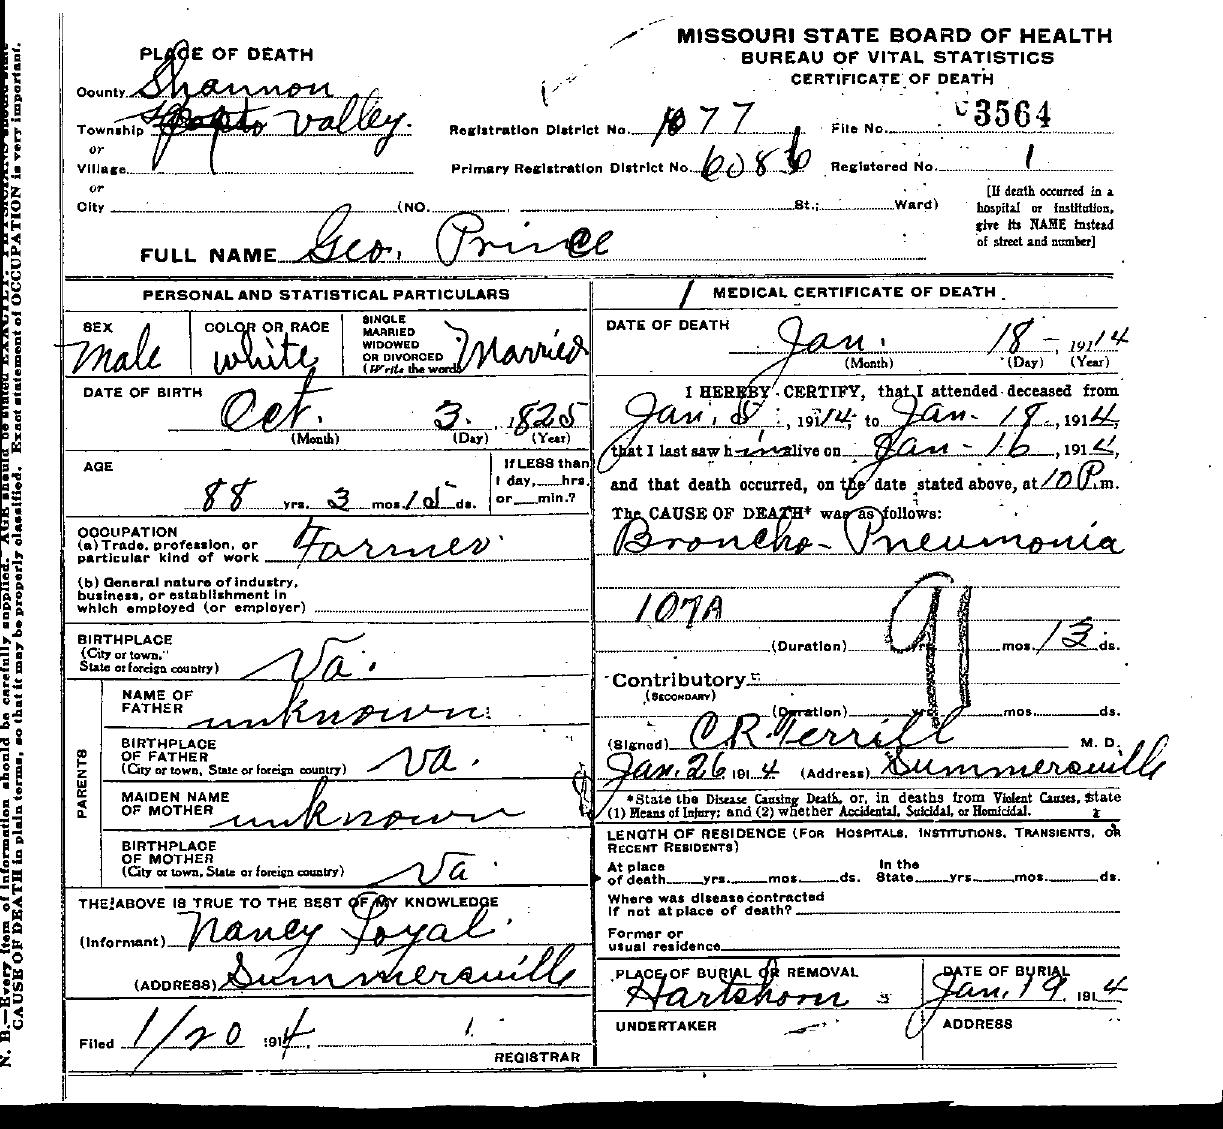 MISSOURI STATE BOARD OF HEALTH
BUREAU OF VITAL STATISTICS
CERTIFICATE OF DEATH
PLACE OF DEATH
County Shannon
Township Valley.
or
Village
or
City (NO. St.; Ward)
Registration District No. 1077 File No. 3564
Primary Registration District No. 6086 Registered No. 1
[If death occurred in a
hospital or institution,
give its NAME instead
of street and number]
FULL NAME Geo. Prince
PERSONAL AND STATISTICAL PARTICULARS
SEX
Male
COLOR OR RACE
White
SINGLE
MARRIED
WIDOWED
OR DIVORCED
(Write the word)
Married
DATE OF BIRTH
Oct. 3. 1825
(Month) (Day) (Year)
AGE
88 yrs. 3 mos. 15 ds.
If LESS than
1 day, hrs.
or min.?
OCCUPATION
(a) Trade, profession, or
particular kind of work Farmer
(b) General nature of industry,
business, or establishment in
which employed (or employer)
BIRTHPLACE
(City or town,
State or foreign country) Va.
PARENTS
NAME OF
FATHER unknown
BIRTHPLACE
OF FATHER
(City or town, State or foreign country) Va.
MAIDEN NAME
OF MOTHER unknown
BIRTHPLACE
OF MOTHER
(City or town, State or foreign country) Va
THE ABOVE IS TRUE TO THE BEST OF MY KNOWLEDGE
(Informant) Nancy Loyal
(ADDRESS) Summersville
Filed 1/20 1914
REGISTRAR
MEDICAL CERTIFICATE OF DEATH
DATE OF DEATH
Jan. 18 - 1914
(Month) (Day) (Year)
I HEREBY CERTIFY, that I attended deceased from
Jan. 5, 1914, to Jan. 18, 1914,
that I last saw him alive on Jan - 16, 1914,
and that death occurred, on the date stated above, at 10 P.m.
The CAUSE OF DEATH* was as follows:
Broncho-Pneumonia
107A 91
(Duration) yrs. mos. 13 ds.
Contributory
(SECONDARY)
(Duration) yrs. mos. ds.
(Signed) C.R. Terrill M. D.
Jan. 26 1914 (Address) Summersville
*State the Disease Causing Death, or, in deaths from Violent Causes, state
(1) Means of Injury; and (2) whether Accidental, Suicidal, or Homicidal.
LENGTH OF RESIDENCE (FOR HOSPITALS, INSTITUTIONS, TRANSIENTS, OR
RECENT RESIDENTS)
At place In the
of death yrs. mos. ds. State yrs. mos. ds.
Where was disease contracted
If not at place of death?
Former or
usual residence
PLACE OF BURIAL OR REMOVAL
Hartshorn
DATE OF BURIAL
Jan. 19 1914
UNDERTAKER
ADDRESS
N. B.—Every item of information should be carefully supplied. AGE should be stated EXACTLY.
CAUSE OF DEATH in plain terms, so that it may be properly classified. Exact statement of OCCUPATION is very important.